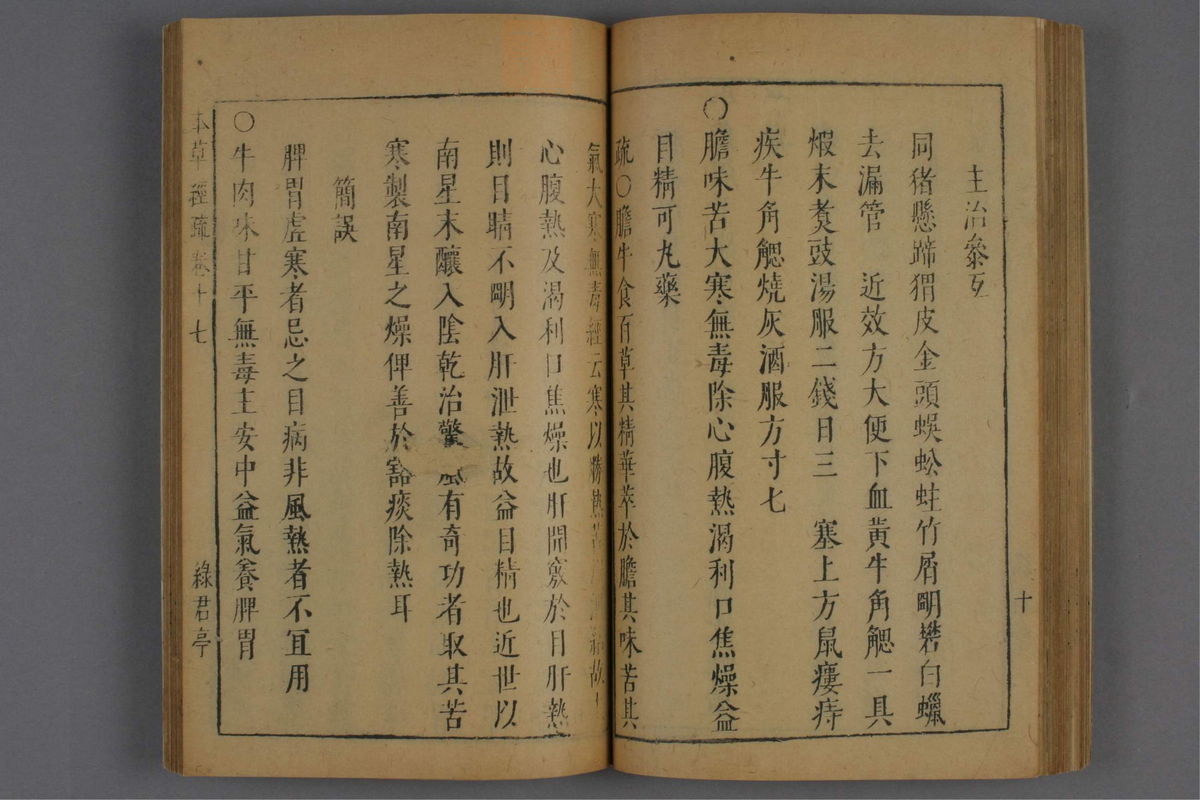 十
主治參互
同猪懸蹄猬皮金頭蜈蚣蛀竹屑朙礬白蠟
去漏管　近效方大便下血黃牛角䚡一具
煆末煑豉湯服二錢日三　塞上方鼠瘻痔
疾牛角䚡燒灰酒服方寸七
〇膽味苦大寒無毒除心腹熱渴利口焦燥益
目精可丸藥
疏〇膽牛食百草其精華萃於膽其味苦其
氣大寒無毒經云寒以勝熱苦故
心腹熱及渴利口焦燥也肝開竅於目肝熱
則目睛不朙入肝泄熱故益目精也近世以
南星末釀入陰乾治驚風有奇功者取其苦
寒製南星之燥俾善於豁痰除熱耳
簡誤
脾胃虛寒者忌之目病非風熱者不宜用
〇牛肉味甘平無毒主安中益氣養脾胃
本草經疏卷十七
綠君亭